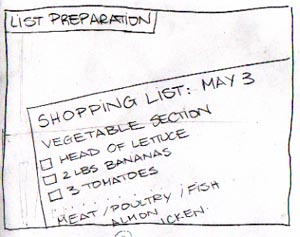 LIST PREPARATION
SHOPPING LIST: MAY 3
VEGETABLE SECTION
HEAD OF LETTUCE
2 LBS BANANAS
3 TOMATOES
MEAT/POULTRY/FISH